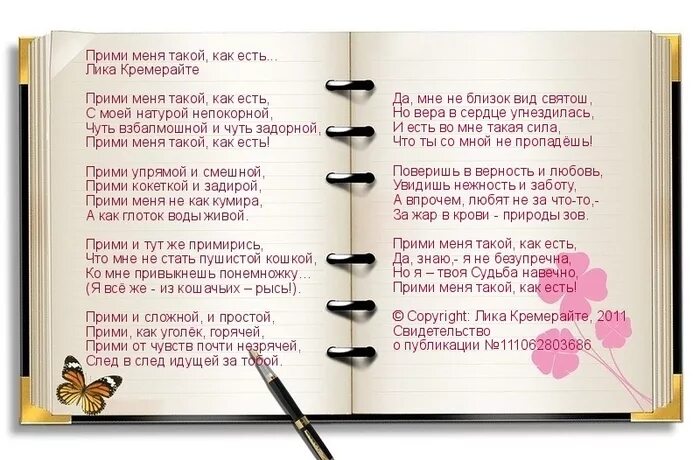 Прими меня такой, как есть...
Лика Кремерайте
Прими меня такой, как есть,
С моей натурой непокорной,
Чуть взбалмошной и чуть задорной,
Прими меня такой, как есть!
Прими упрямой и смешной,
Прими кокеткой и задирой,
Прими меня не как кумира,
А как глоток воды живой.
Прими и тут же примирись,
Что мне не стать пушистой кошкой,
Ко мне привыкнешь понемножку...
(Я всё же - из кошачьих – рысь!).
Прими и сложной, и простой,
Прими, как уголёк, горячей,
Прими от чувств почти незрячей,
След в след идущей за тобой.
Да, мне не близок вид святош,
Но вера в сердце угнездилась,
И есть во мне такая сила,
Что ты со мной не пропадёшь!
Поверишь в верность и любовь,
Увидишь нежность и заботу,
А впрочем, любят не за что-то,-
За жар в крови - природы зов.
Прими меня такой, как есть,
Да, знаю,- я не безупречна,
Но я – твоя Судьба навечно,
Прими меня такой, как есть!
© Copyright: Лика Кремерайте, 2011
Свидетельство
о публикации №111062803686